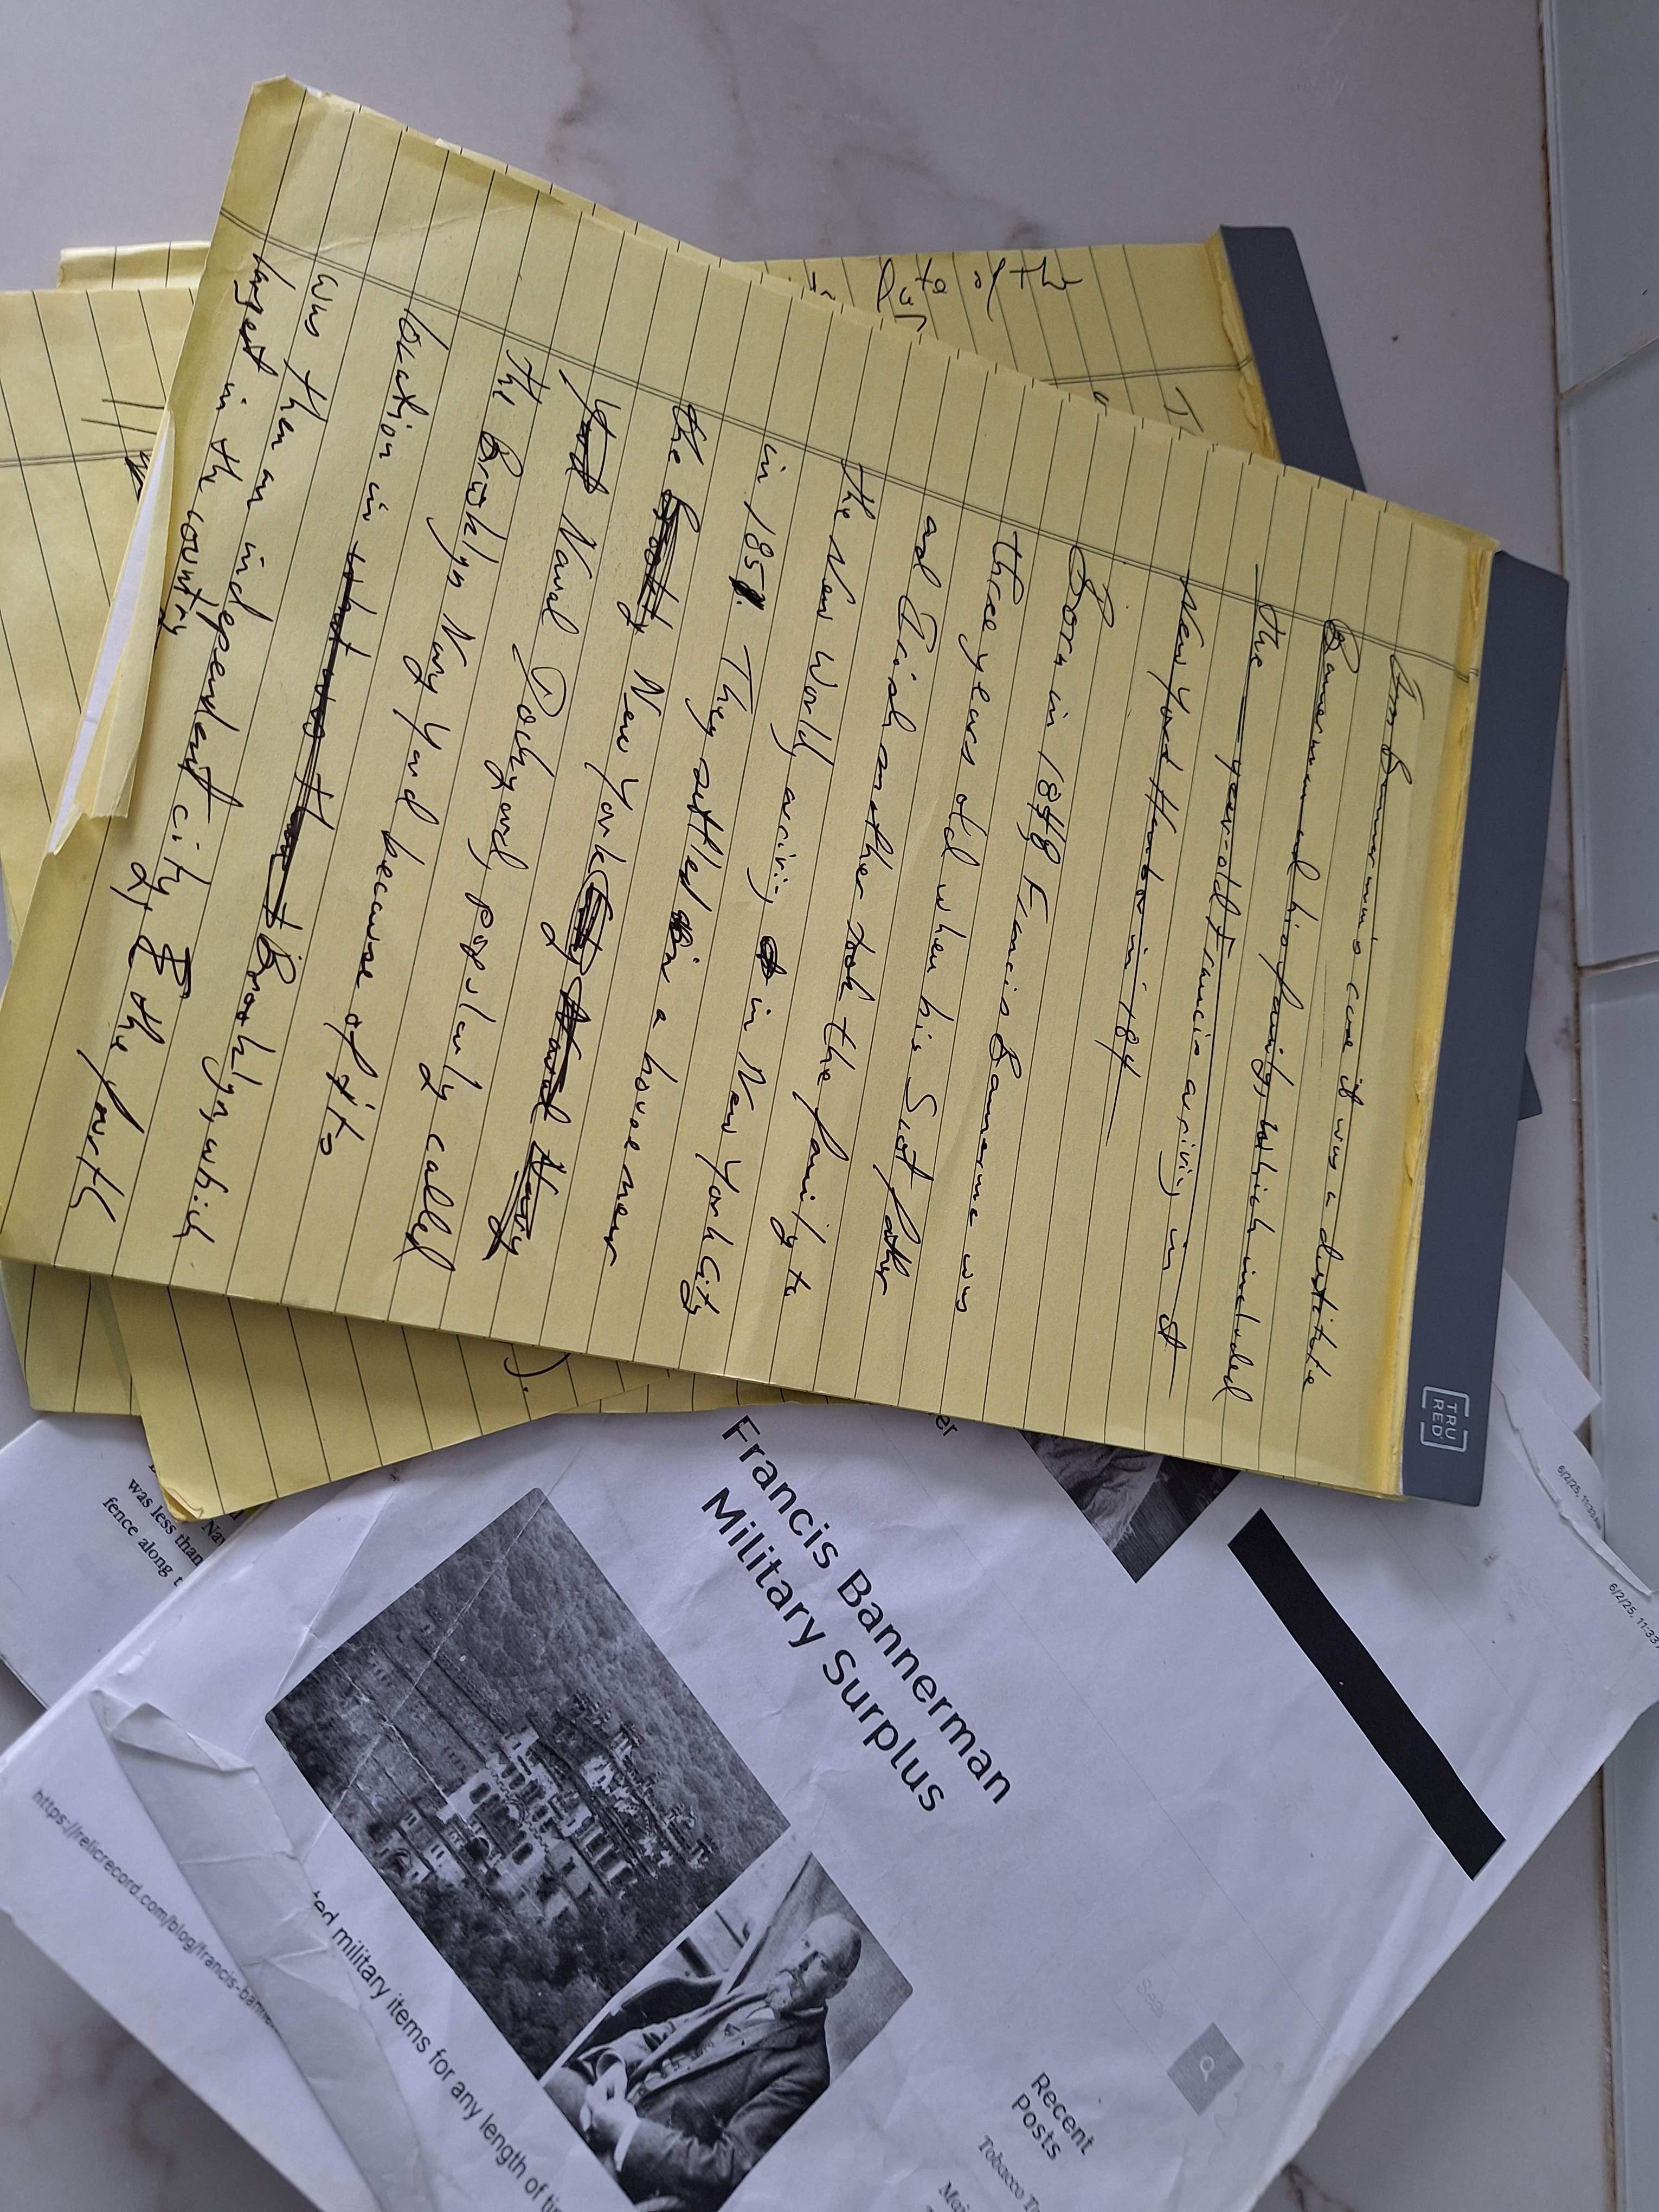 In Bannerman's case it was a destitute
Bannerman and his family, which included
the — year-old Francis arriving in
New York Harbor in 184
Born in 1848 Francis Bannerme was
three years old when his Scot father
and Irish mother took the family to
the New World, arriving in New York City
in 1851. They settled in a house near
the New York City Naval Navy
Yard Naval Dockyard, popularly called
the Brooklyn Navy Yard because of its
location in what was then Brooklyn, which
was then an independent city, the fourth
largest in the country
Date of the
).
TRU
RED
er
Francis Bannerman
Military Surplus
6/2/25, 11:33
6/2/25, 11:33
Recent
Posts
ted military items for any length of ti
https://relicrecord.com/blog/francis-banne
was less than
fence along t